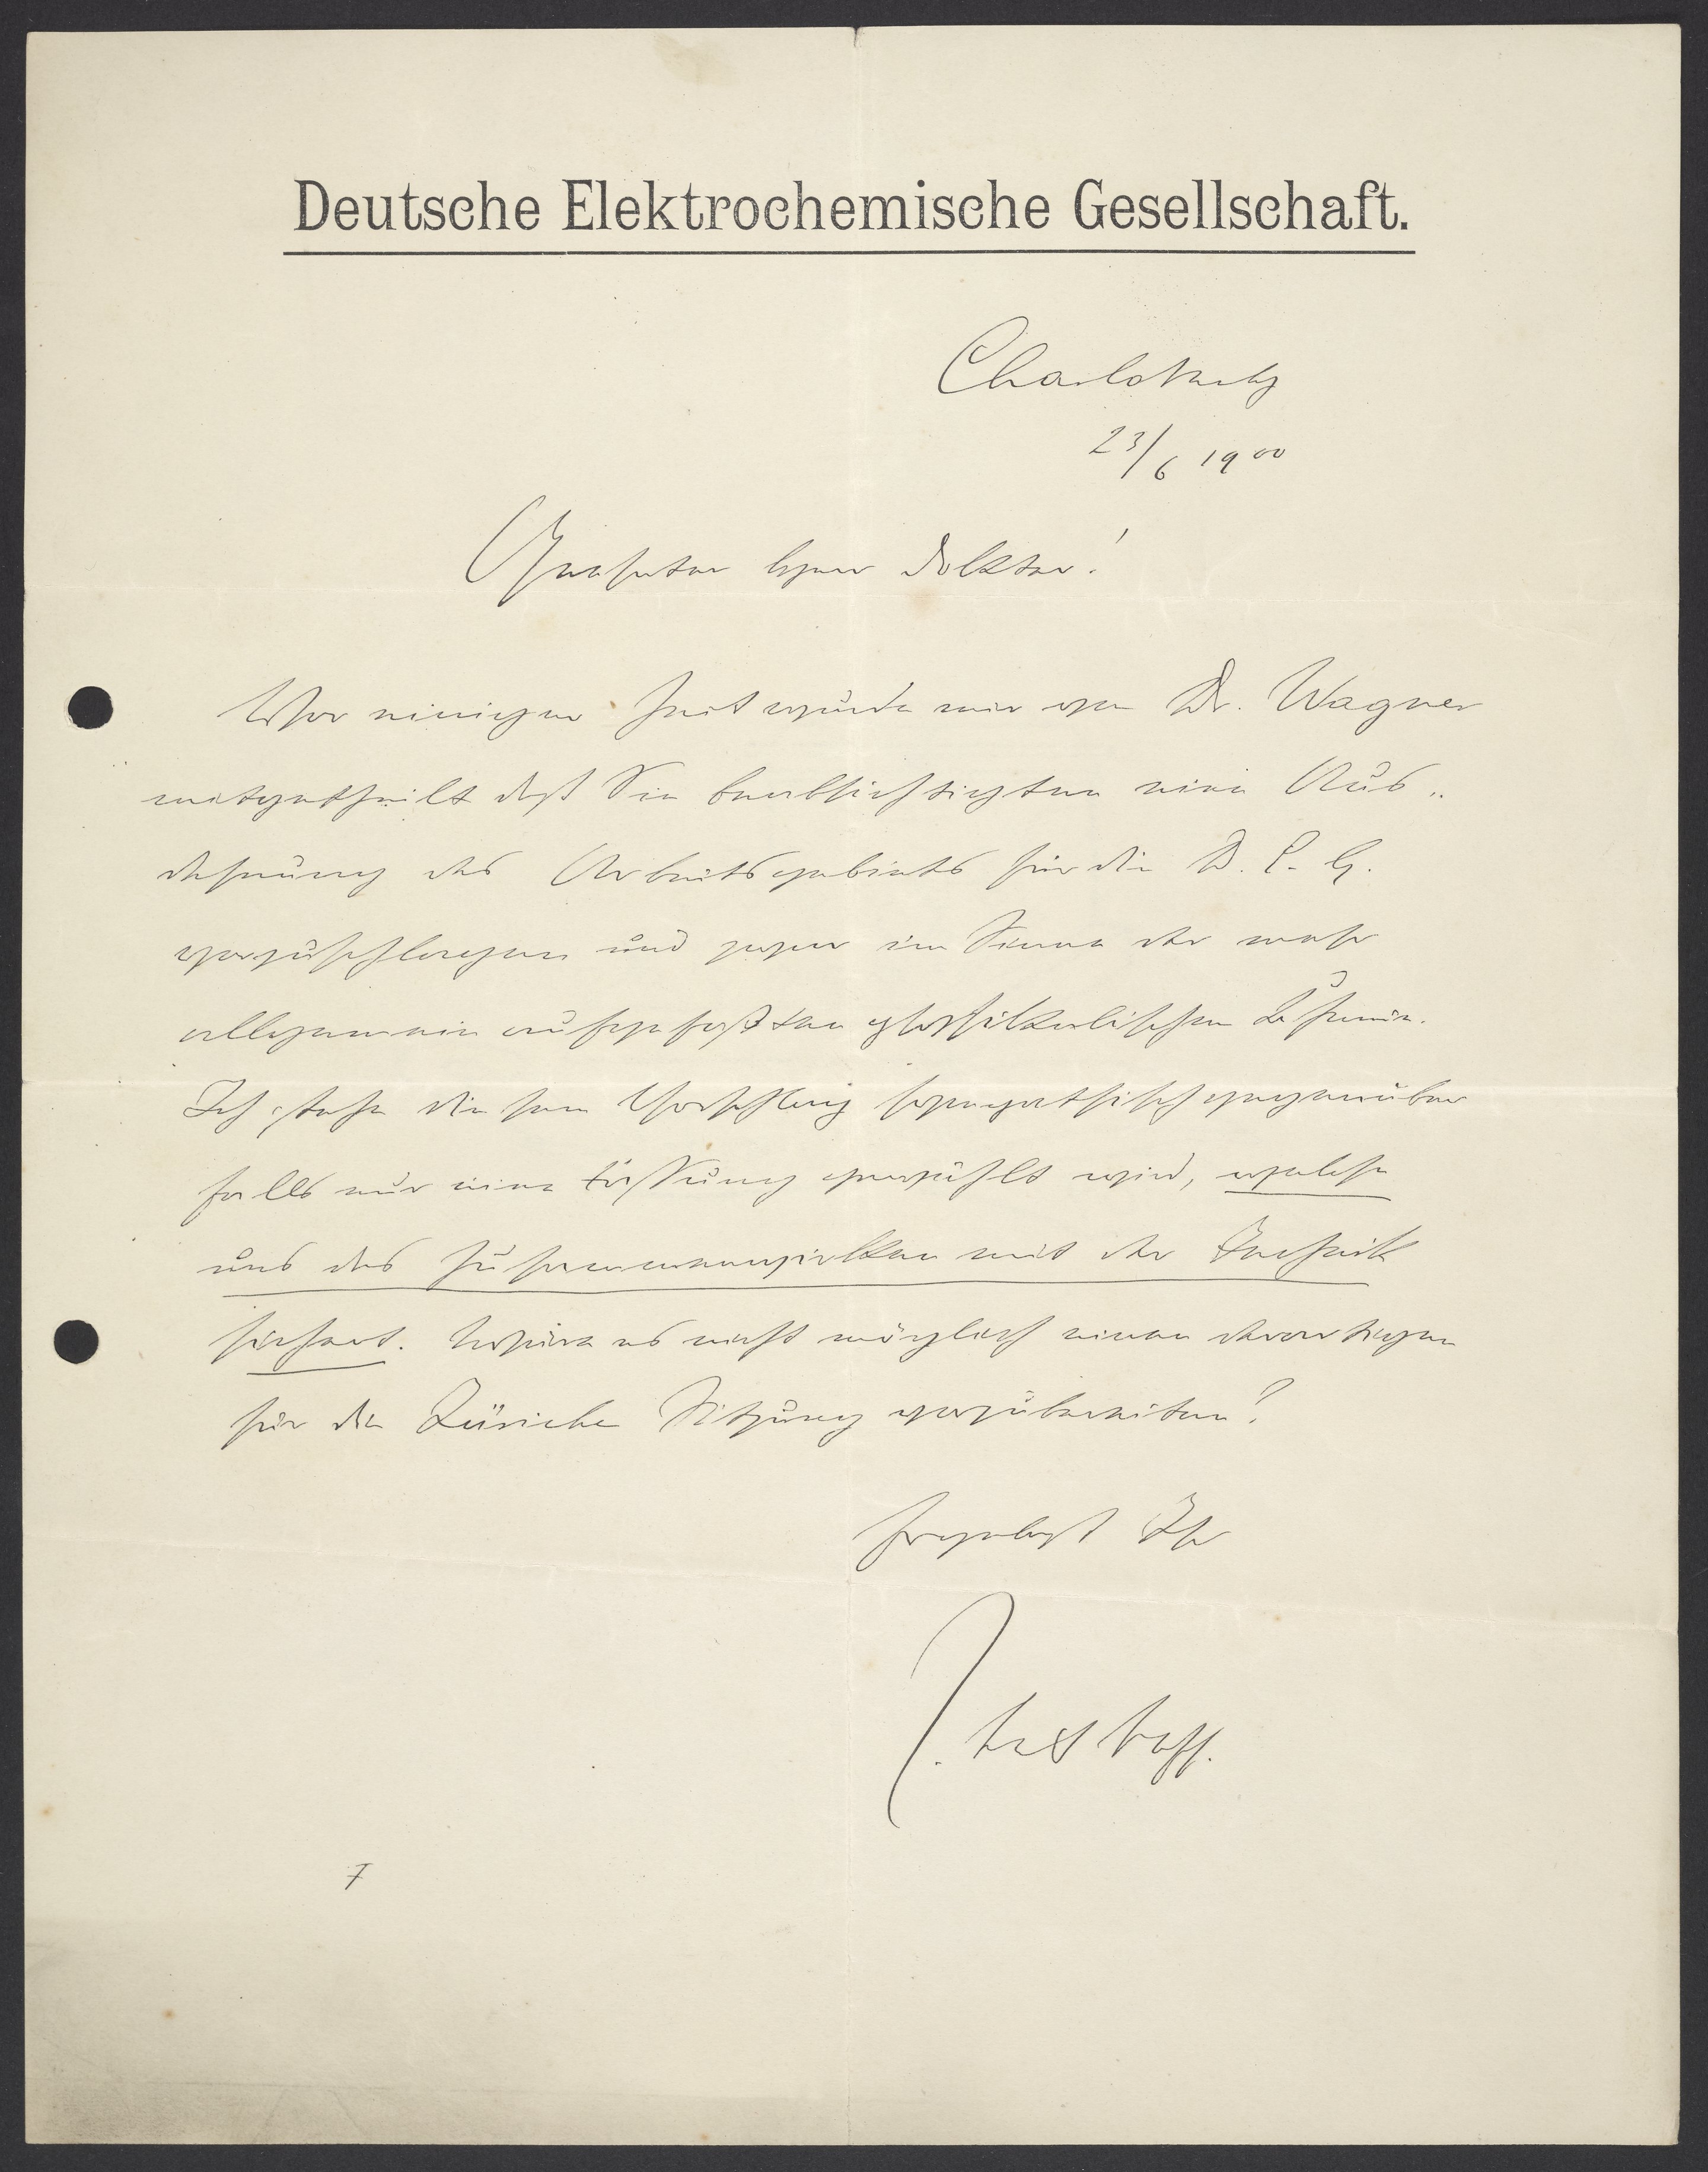 Deutsche Elektrochemische Gesellschaft.
Charlottenbg
23/6 1900
Geehrter Herr Doktor!
Vor einiger Zeit wurde mir von Dr. Wagner
mitgetheilt daß Sie beabsichtigten eine Aus-
dehnung des Arbeitsgebiets für die D. E. G.
vorzuschlagen und zwar im Sinne der mehr
allgemein aufgefaßten physikalischen Chemie.
Ich stehe diesem Vorschlag sympathisch gegenüber
falls nur eine Fassung gewählt wird, welche
uns das Zusammenwirken mit der Technik
sichert. Wäre es nicht möglich einen derartigen
für die Züricher Sitzung vorzubereiten?
Ihr
J. H. van't Hoff.
7